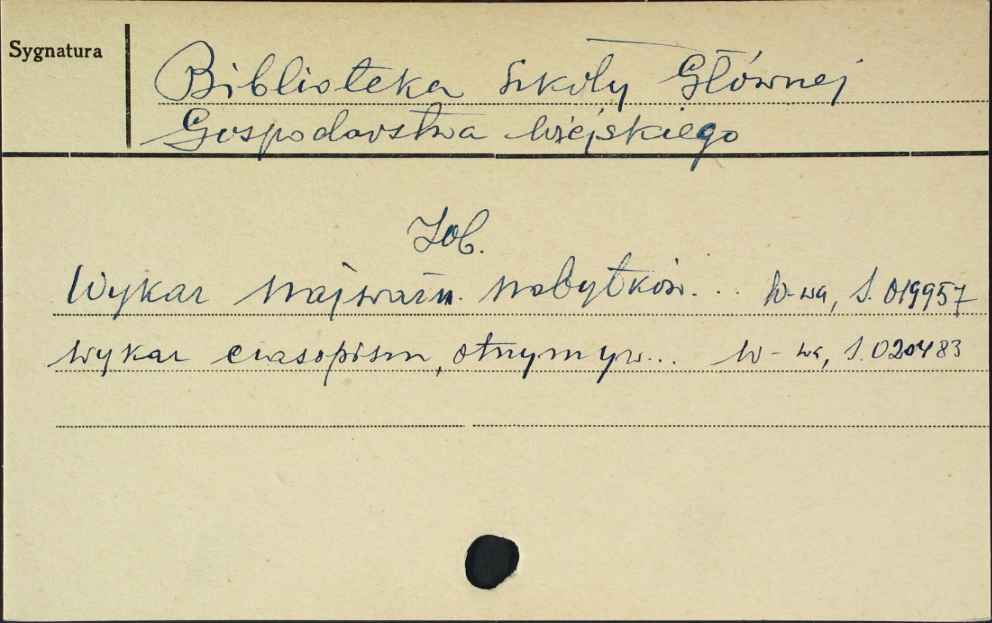 Sygnatura
Biblioteka Szkoły Głównej
Gospodarstwa Wiejskiego
Zob.
Wykaz najważn. nabytków... W-wa, S. 019957
Wykaz czasopism, otrzymyw... W-wa, S. 020483